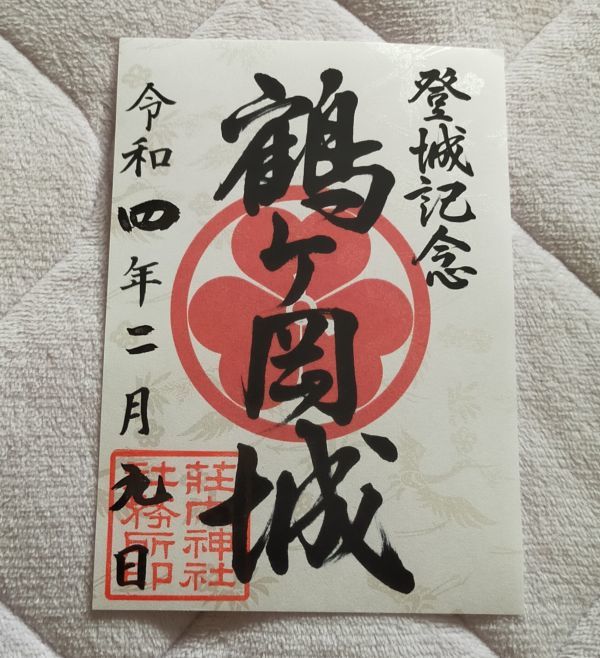 登城記念
鶴ヶ岡城
令和四年二月九日
荘内神社
社務所印